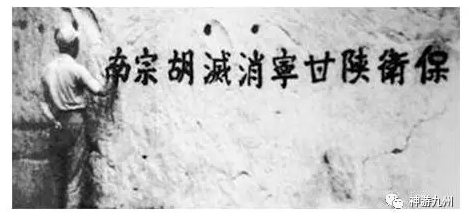 保衛陝甘寧消滅胡宗南
神游九州